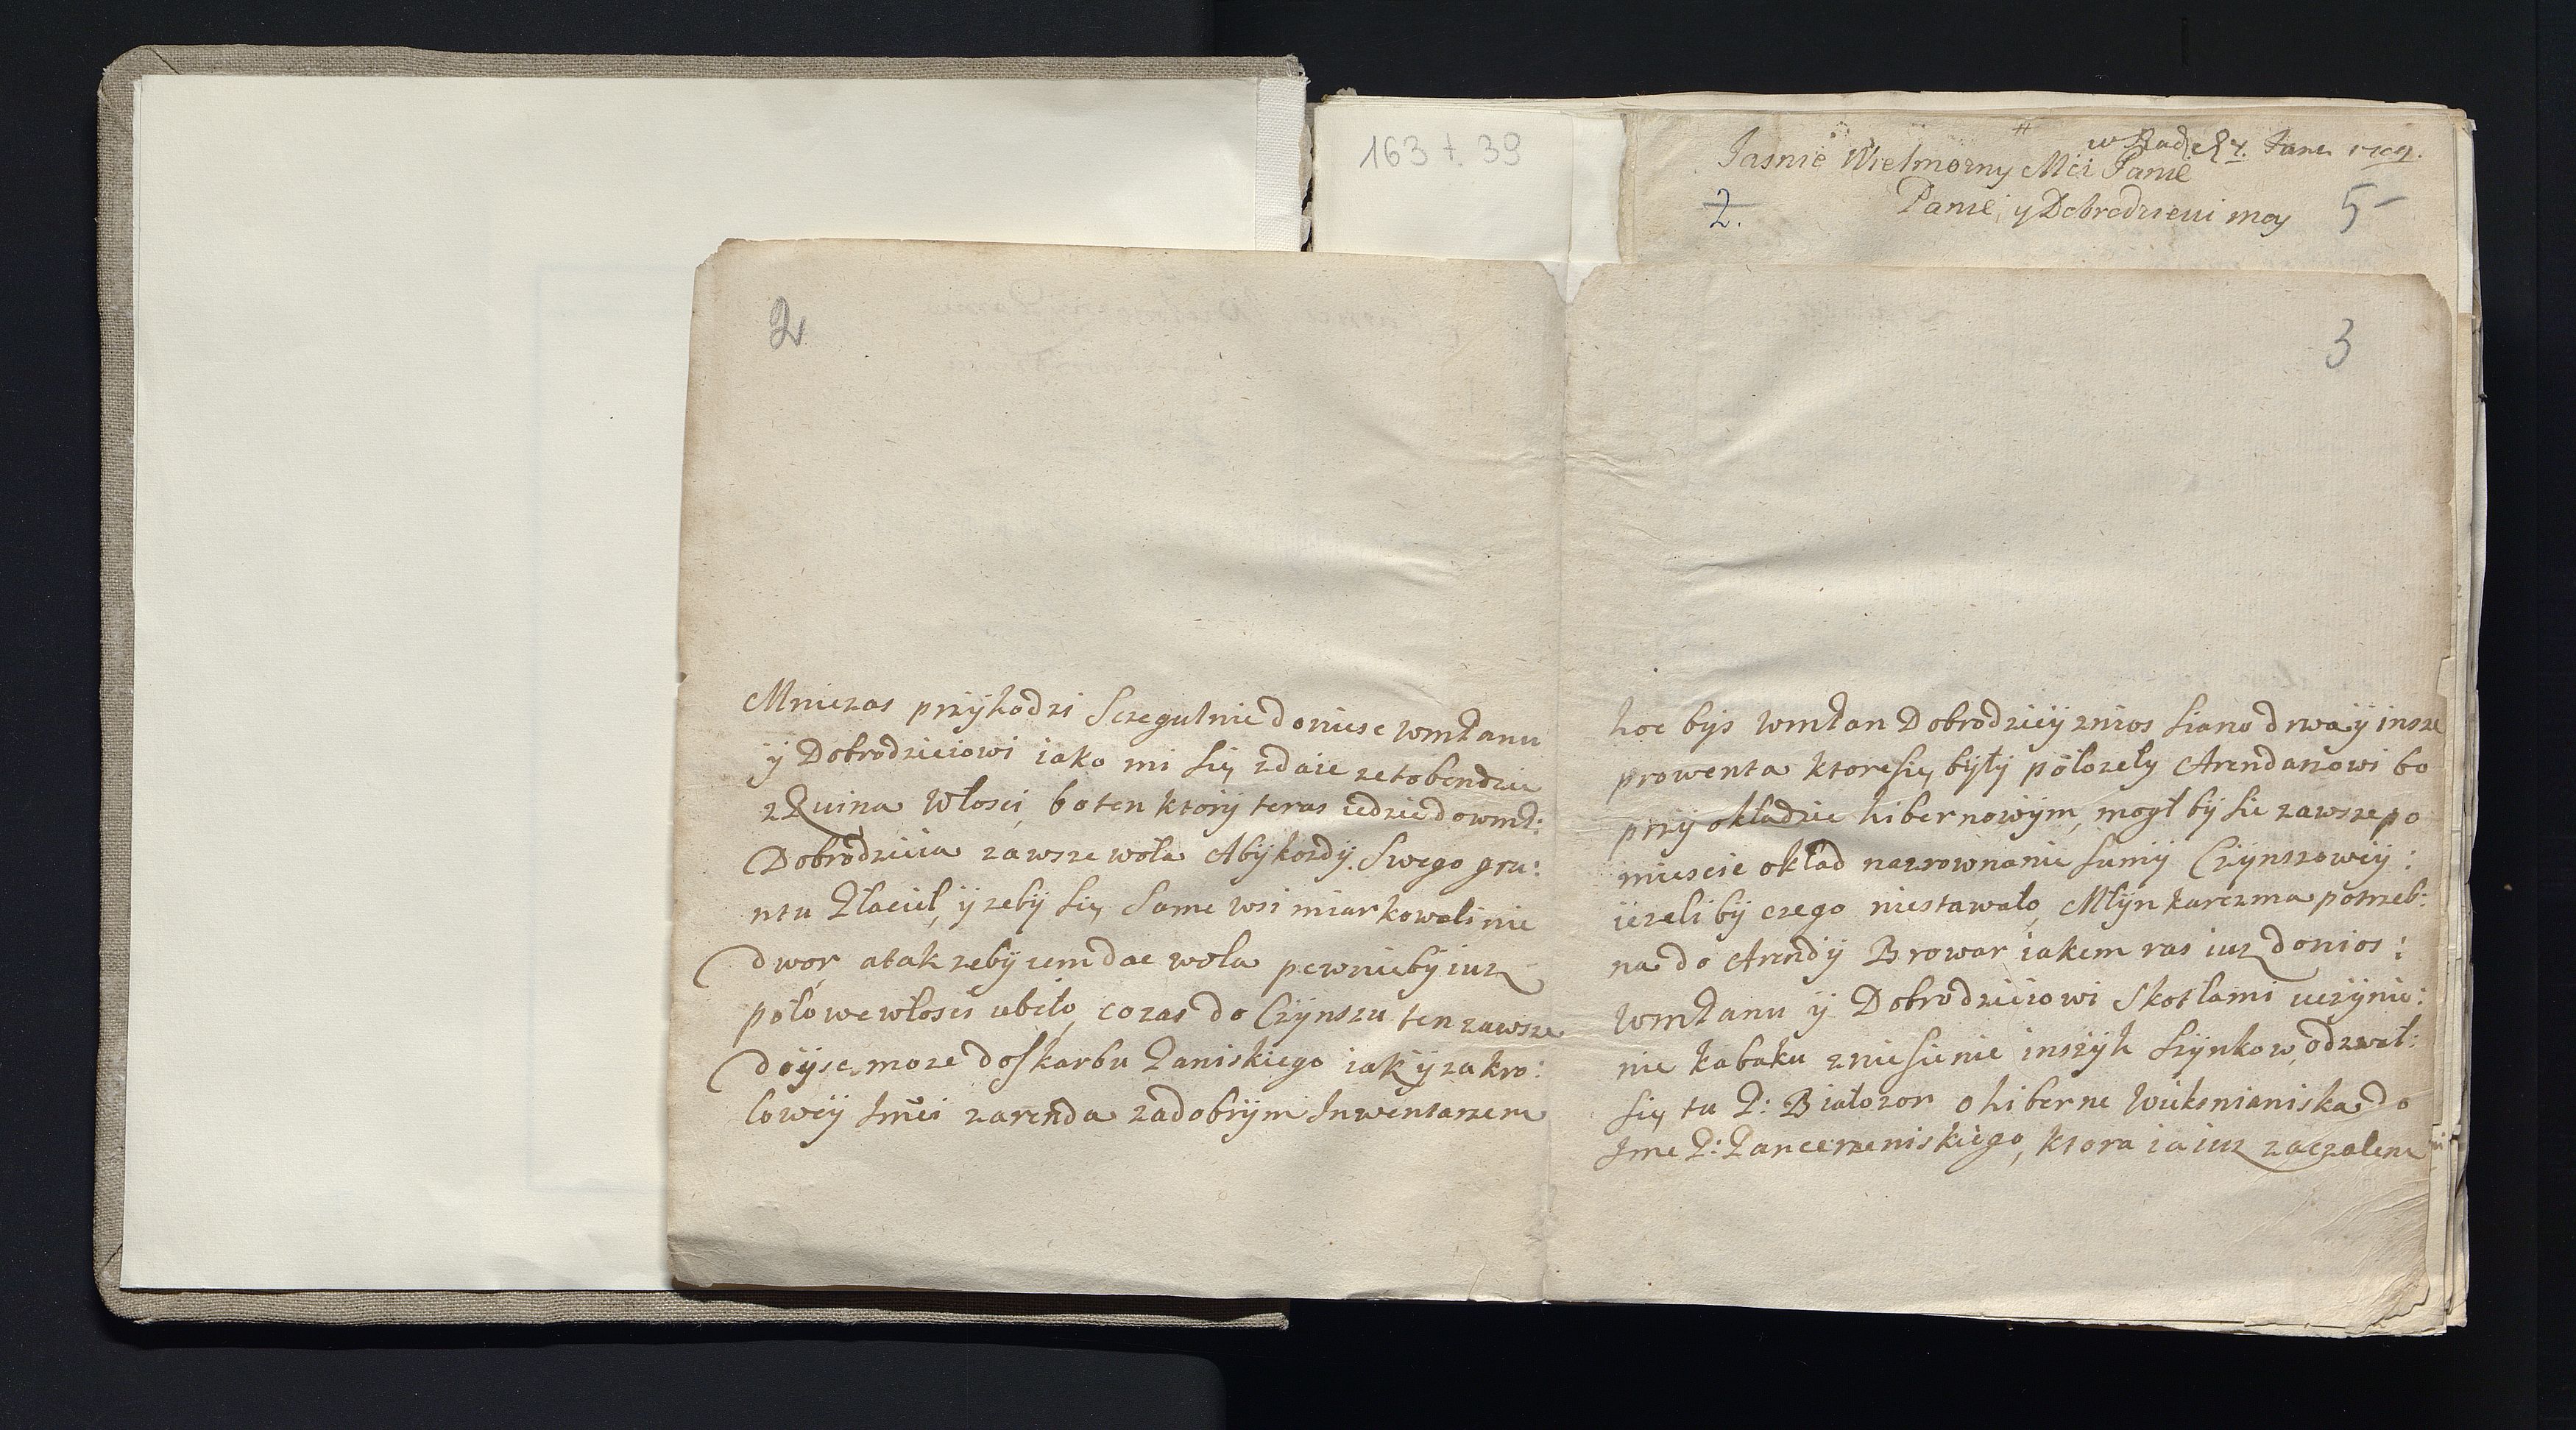 163 t. 39
Jasnie Wielmozny Mći Panie
2.
Panie, y Dobrodzieiu moy
5
2
Mniezas przÿhodzi Sczegulnie doniesc WmPanu
ÿ Dobrodzieiowi iako mi się zdaie ze to bendzie
z Ruina Włosci, bo ten ktorÿ teras iedzie do wmP:
Dobrodzieia zawsze woła Abÿ kozdÿ Swego gru:
ntu Płacieł, ÿ zebÿ się Same wsi miarkowali nie
dwor, a tak zebÿ iem dac wola pewnie bÿ iuz
połowe włosci ubeło, co zas do Czÿnszu ten zawsze
doÿsc moze do skarbu Paniskiego iak ÿ za kro:
lowÿ Jmći zarenda za dobrÿm Inwentarzem
3
hoc bÿs WmPan Dobrodzieÿ znios siano drwa ÿ insze
prowenta ktore się bÿłÿ połozełÿ Arendarzowi bo
przÿ okładzie hibernowÿm, mogł bÿ sie zawsze po
miescie okład na zrownanie sumÿ Czÿnszoweÿ:
iezeli bÿ czego niestawało, Młÿn karczma potrzeb:
na do Arendÿ Browar iakem ras iuz donios:
WmPanu ÿ Dobrodzieiowi Skotłami uczÿnie:
nie kabaku zniesienie inszÿh Szÿnkow, odzwał:
się tu P: Białozor o hiberne Wieksnianiska do
Jme P: Pancerzeniskiego, ktora ia iuz zaczałem